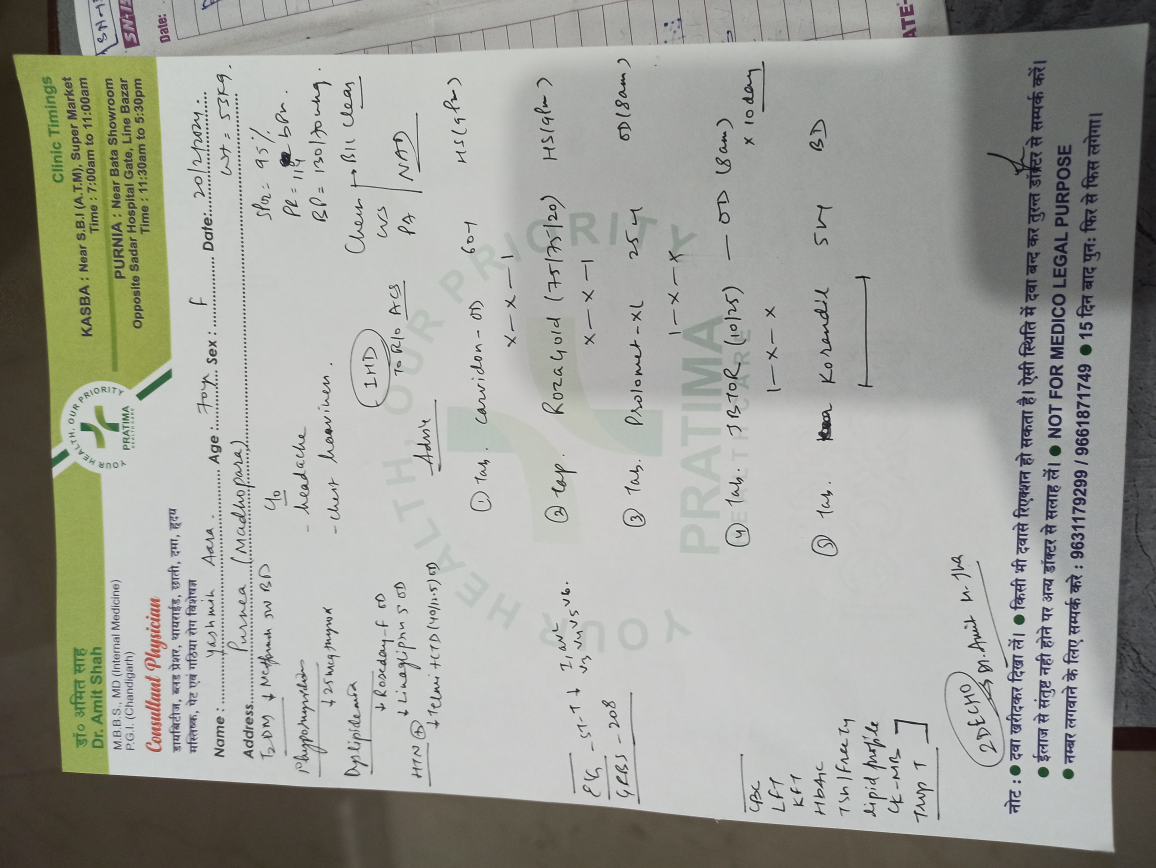 डॉ० अमित साह
Dr. Amit Shah
M.B.B.S., MD (Internal Medicine)
P.G.I. (Chandigarh)
Consultant Physician
डायबिटीज, ब्लड प्रेशर, थायराईड, छाती, दमा, हृदय
मस्तिष्क, पेट एवं गठिया रोग विशेषज्ञ
YOUR HEALTH, OUR PRIORITY
PRATIMA
Clinic Timings
KASBA : Near S.B.I (A.T.M), Super Market
Time : 7:00am to 11:00am
PURNIA : Near Bata Showroom
Opposite Sadar Hospital Gate, Line Bazar
Time : 11:30am to 5:30pm
Name : Yashmin Aara. Age : 70yr Sex : F Date: 20/2/2024.
Address Purnea (Madhopara) Wt = 53Kg.
T2DM ↓ Metformin BD
↓ 25mcg thyrox
Dyslipidemia
↓ Roseday-F OD
↓ Linagliptin 5 OD
HTN ⊕
↓ Telmi + CTD (40/12.5) OD
C/o
- headache
- chest heaviness.
IHD
To R/o ACS
SPO2 = 95%
PR = 114 bpm.
BP = 130/70mmHg.
Chest → B/L Clear
CVS
PA
NAD
ECG - ST-T ↓ I, aVL
V3 V4 V5 V6.
GRBS - 208
Advice
① Tab. Carvidon-OD 60mg HS (9pm)
x-x-1
② Cap. Rozagold (75/75/20) HS (9pm)
x-x-1
③ Tab. Prolomet-XL 25mg OD (8am)
1-x-x
④ Tab. (10/25) — OD (8am)
1-x-x x 10 day
⑤ Tab. Korandil 5mg BD
CBC
LFT
KFT
HbA1c
TSH/Free T4
Lipid profile
CK-MB
Trop T
2D ECHO
Dr. Amit
YOUR HEALTH, OUR PRIORITY
PRATIMA
HEALTH CARE
नोट : ● दवा खरीदकर दिखा लें। ● किसी भी दवासे रिएक्शन हो सकता है। ऐसी स्थिति में दवा बन्द कर तुरन्त डॉक्टर से सम्पर्क करें।
● ईलाज से संतुष्ट नही होने पर अन्य डॉक्टर से सलाह लें। ● NOT FOR MEDICO LEGAL PURPOSE
● नम्बर लगावाने के लिए सम्पर्क करे : 9631179299 / 9661871749 ● 15 दिन बाद पुनः फिर से फिस लगेगा।
Date: